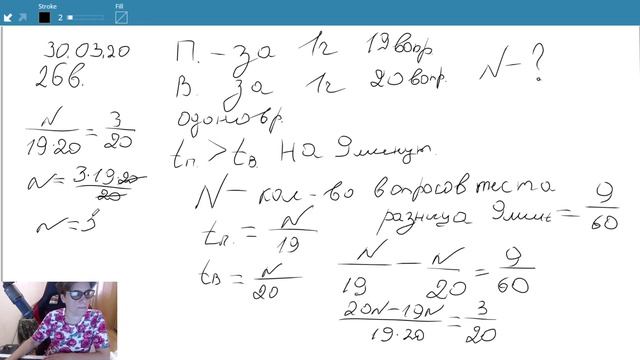 Stroke
2
Fill
30.03.20
26 в.
П. – за 1ч 19 вопр
В. за 1ч 20 вопр.
N – ?
одоновр.
tп. > tв. на 9 минут.
N – кол-во вопросов теста
разница 9 мин = 9/60
tп. = N/19
tв = N/20
N/19 – N/20 = 9/60
20N – 19N/19·20 = 3/20
N/19·20 = 3/20
N = 3·19·20/20